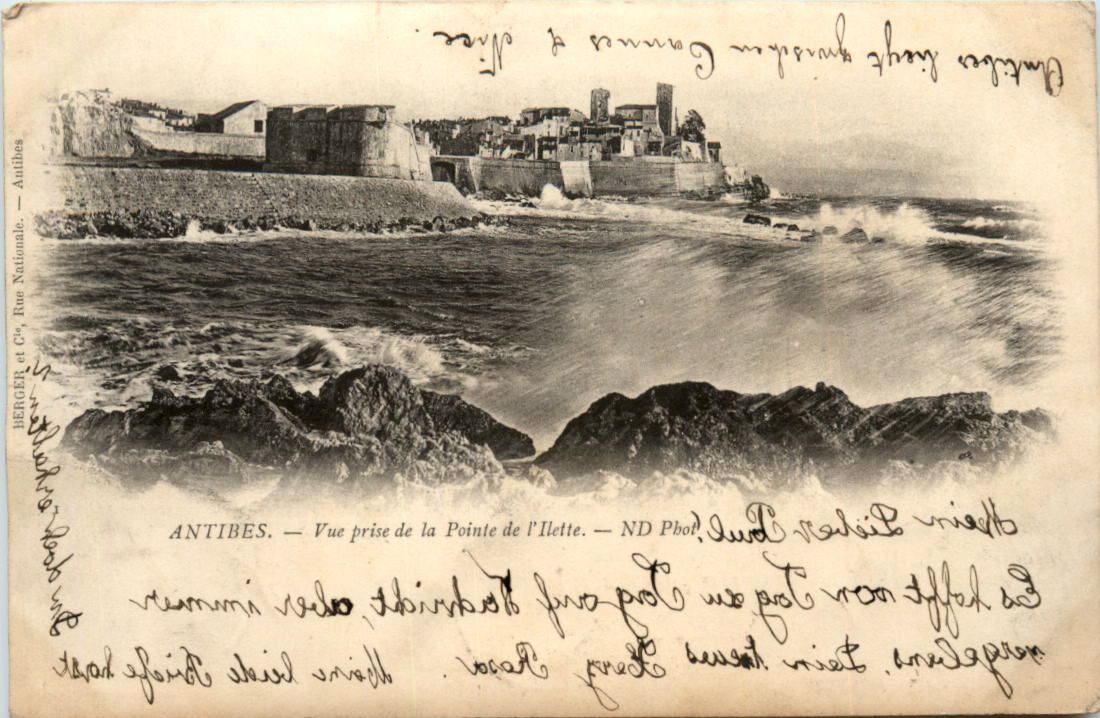 Antibes liegt zwischen Cannes & Nice.
BERGER et Cie, Rue Nationale. — Antibes
ANTIBES. — Vue prise de la Pointe de l'Ilette. — ND Phot
Mein Lieber Paul!
Es hofft von Tag zu Tag auf Nachricht, aber immer
vergebens, Dein treues Herz Rosa.
Meine beide Briefe hast
Du doch erhalten?